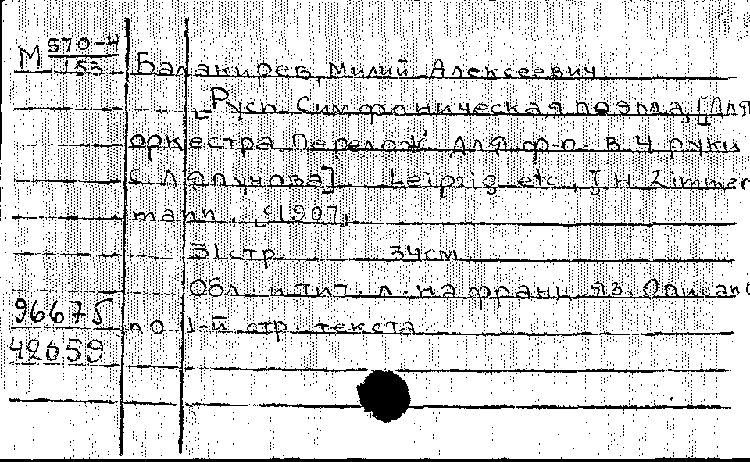 М 570-4/153 Балакирев, Милий Алексеевич
Русь. Симфоническая поэма, [Для
оркестра. Перелож. для ф-о. в 4 руки
С. Ляпунова]. Leipzig etc., J. H. Zimmer
mann, [1907]
31 стр. 34 см
Обл. и тит. л. на франц. яз. Описано
96675 по 1-й стр. текста
42059